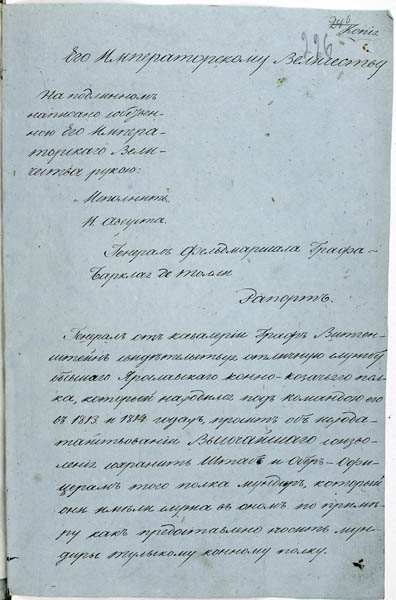 Копія
226
Его Императорскому Величеству
На подлинномъ
написано собствен-
ною Его Импера-
торскаго Вели-
чества рукою:
„Исполнить.
11. Августа.
Генералъ Фельдмаршала Графа
Барклая де Толли
Рапортъ.
Генералъ отъ кавалеріи Графъ Витген-
штейнъ свидѣтельствуя отличную службу
бывшаго Ярославскаго конно-козачьяго пол-
ка, который находился подъ командою его
въ 1813 и 1814 годахъ, проситъ объ исхода-
тайствованіи Высочайшаго соизво-
ленія сохранить Штабъ и Оберъ-Офи-
церамъ того полка мундиръ, который
они имѣли служа въ ономъ, по примѣ-
ру какъ предоставлено носить мун-
диры тульскому конному полку.